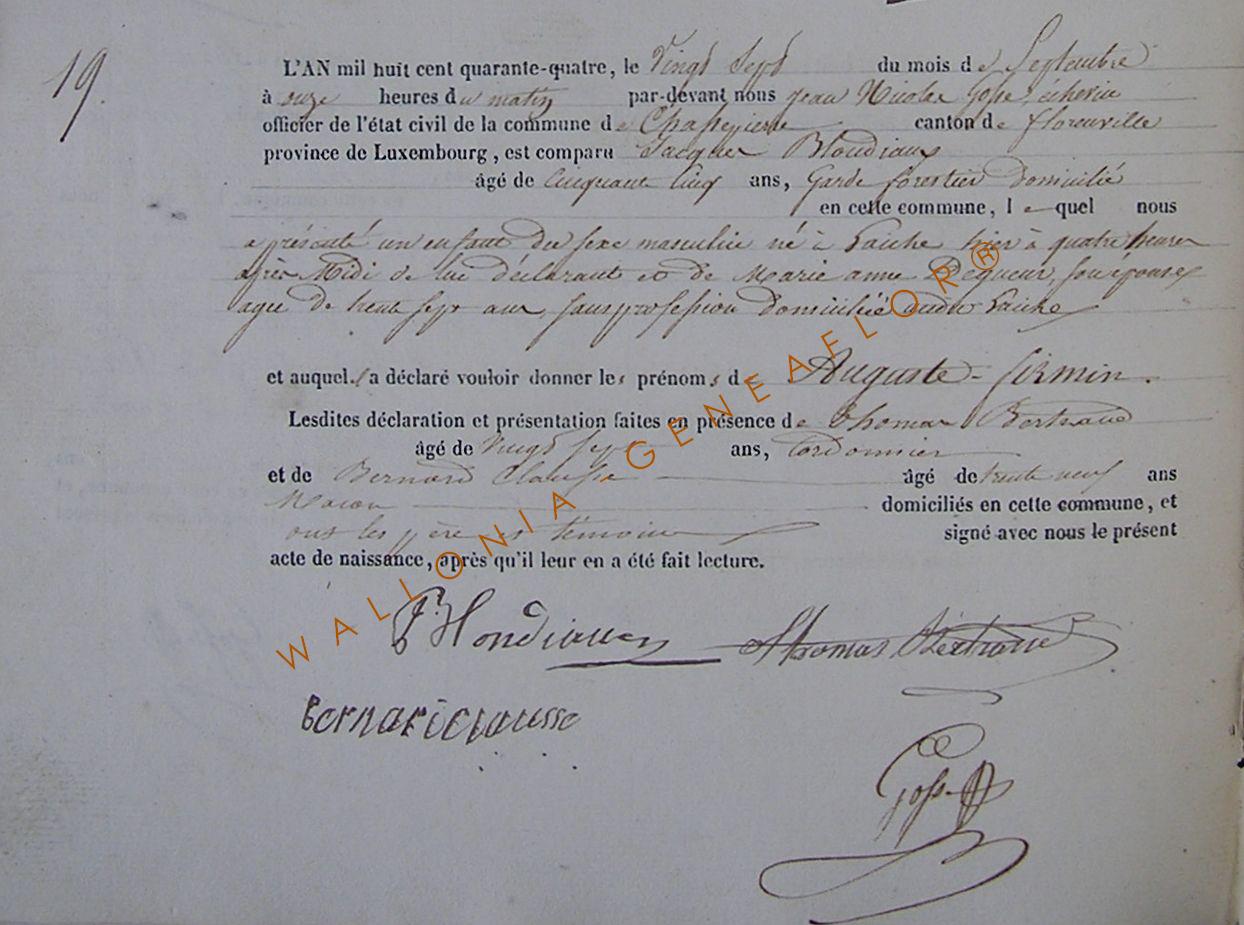 19.
L'AN mil huit cent quarante-quatre, le Vingt Sept du mois de Septembre
à onze heures du matin par-devant nous jean Nicolas Gosse, échevin
officier de l'état civil de la commune de Chassepierre canton de florenville
province de Luxembourg, est comparu Jacques Blondiaux
âgé de Cinquante Cinq ans, Garde forestier domicilié
en cette commune, lequel nous
a présenté un enfant du sexe masculin né à Laiche hier à quatre heures
après Midi de lui déclarant et de Marie anne son épouse
agée de trente sept ans, sans profession domiciliée audit Laiche
et auquel il a déclaré vouloir donner les prénoms de Auguste-firmin.
Lesdites déclaration et présentation faites en présence de thomas Bertrand
âgé de vingt sept ans, Cordonnier
et de Bernard Clausse âgé de trente neuf ans
Macon domiciliés en cette commune, et
ont les père et témoins signé avec nous le présent
acte de naissance, après qu'il leur en a été fait lecture.
Blondiaux Thomas Bertrand
Bernard clausse
Gosse
WALLONIA GENEAFLOR®